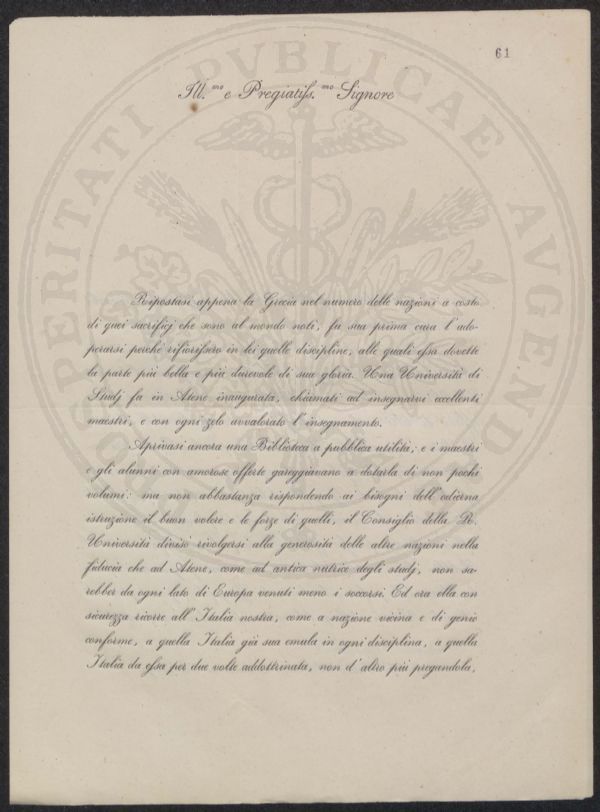 61
Ill.mo e Pregiatiss.mo Signore
Ripostasi appena la Grecia nel numero delle nazioni a costo
di quei sacrificj che sono al mondo noti, fu sua prima cura l'ado-
perarsi perchè rifiorissero in lei quelle discipline, alle quali essa dovette
la parte più bella e più durevole di sua gloria. Una Università di
Studj fu in Atene inaugurata, chiamati ad insegnarvi eccellenti
maestri, e con ogni zelo avvalorato l'insegnamento.
Aprivasi ancora una Biblioteca a pubblica utilità; e i maestri
e gli alunni con amorose offerte gareggiavano a dotarla di non pochi
volumi: ma non abbastanza rispondendo ai bisogni dell'odierna
istruzione il buon volere e le forze di quelli, il Consiglio della R.
Università divisò rivolgersi alla generosità delle altre nazioni nella
fiducia che ad Atene, come ad antica nutrice degli studj, non sa-
rebber da ogni lato di Europa venuti meno i soccorsi. Ed ora ella con
sicurezza ricorre all'Italia nostra, come a nazione vicina e di genio
conforme, a quella Italia già sua emula in ogni disciplina, a quella
Italia da essa per due volte addottrinata, non d'altro più pregandola,
PROSPERITATI PVBLICAE AVGENDAE